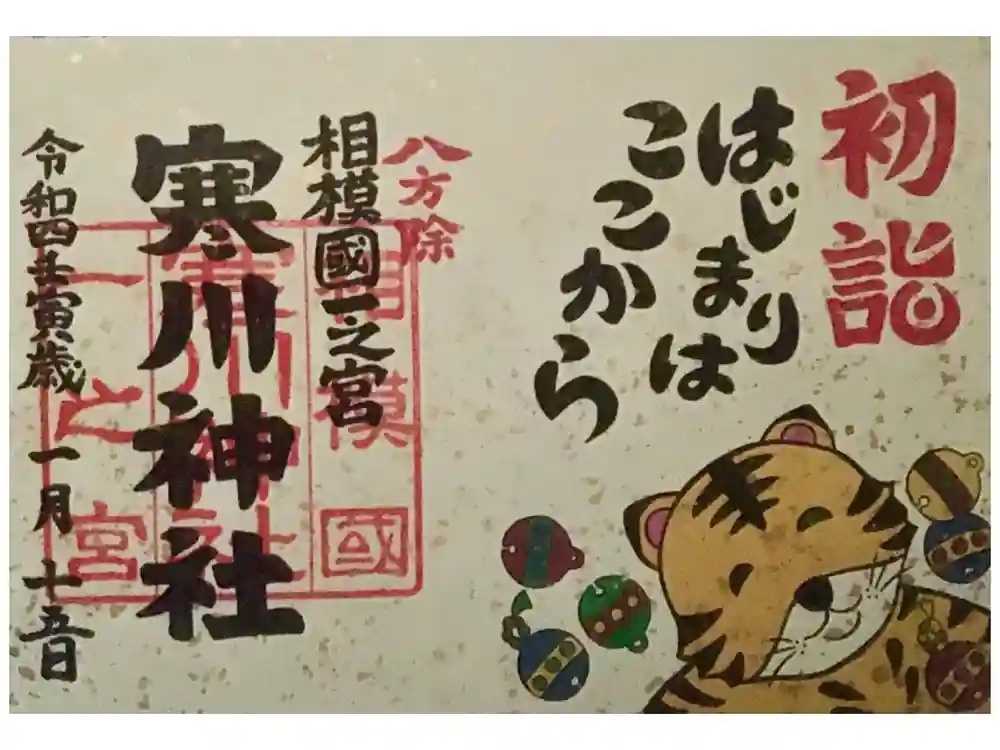 初詣
はじまりは
ここから
八方除
相模國一之宮
寒川神社
令和四壬寅歳 一月 十五日
相模國
寒川神社
一之宮